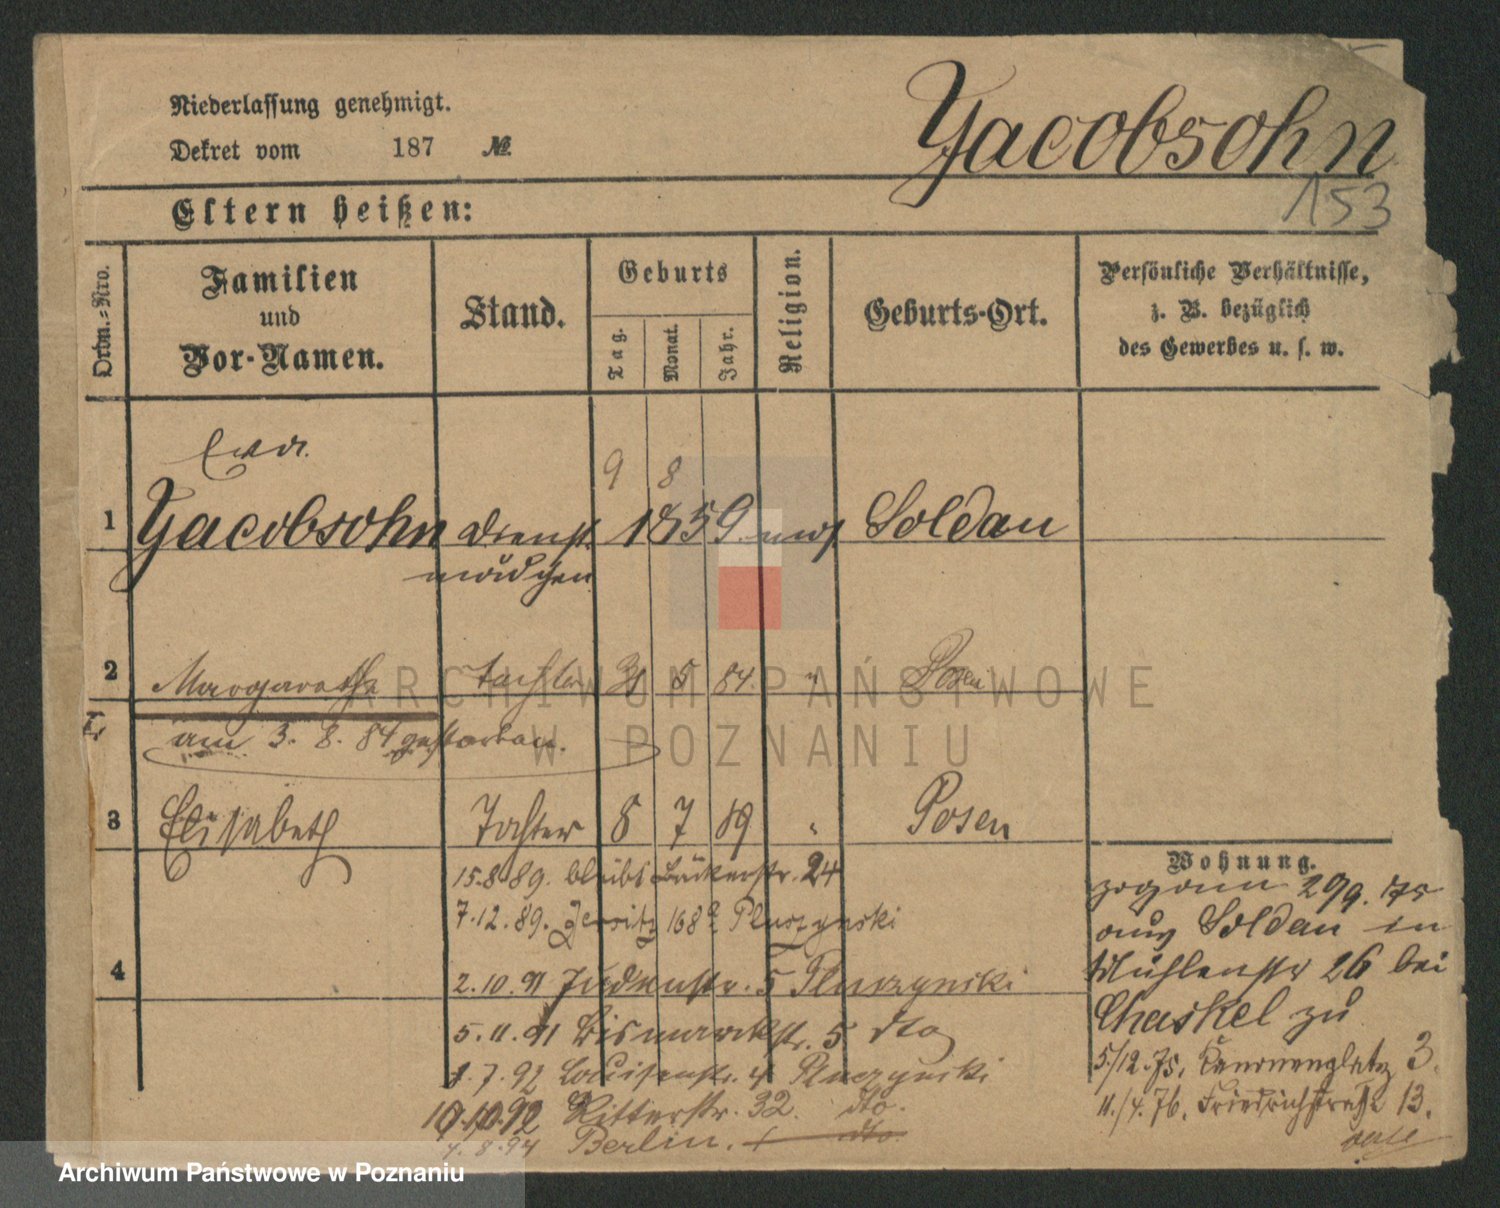 Niederlassung genehmigt.
Dekret vom 187 №
Yacobsohn
153
Eltern heißen:
Ordn.=Nro.
Familien
und
Vor-Namen.
Stand.
Geburts
Tag.
Monat.
Jahr.
Religion.
Geburts-Ort.
Persönliche Verhältnisse,
z. B. bezüglich
des Gewerbes u. s. w.
Eva
9 8
1 Yacobsohn Dienst- 1859 mos Soldau
mädchen
2 Margarethe Tochter 31 5 84. " Posen
am 3. 8. 84 gestorben.
3 Elisabeth Tochter 8 7 89 " Posen
15.8.89. bleibt Bäckerstr. 24
7.12.89. Jersitz 168a Pluszynski
4
2.10.91 Judenstr. 5 Pluszynski
5.11.91 Bismarckstr. 5 dto
1.7.92 Louisenstr. 4 Pluszynski
10.10.92 Ritterstr. 32. dto.
4.8.94 Berlin. dto.
Wohnung.
zog am 29/9. 75
aus Soldau in
Mühlenstr 26 bei
Chaskel zu
5./12.75. Kanonenplatz 3.
11./4.76. Friedrichstraße 13.
ARCHIWUM PAŃSTWOWE
W POZNANIU
Archiwum Państwowe w Poznaniu